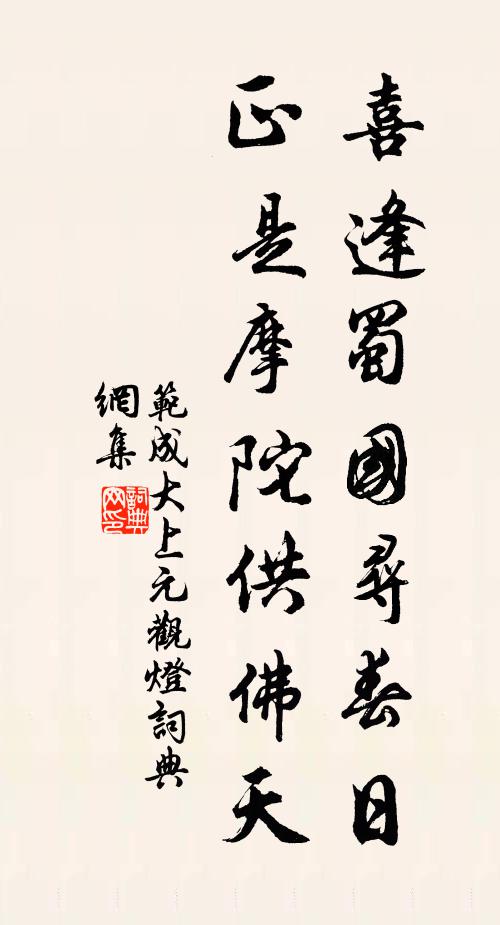 喜逢蜀國尋春日
正是摩陀供佛天
範成大上元觀燈詞典
網集
詞典
网印